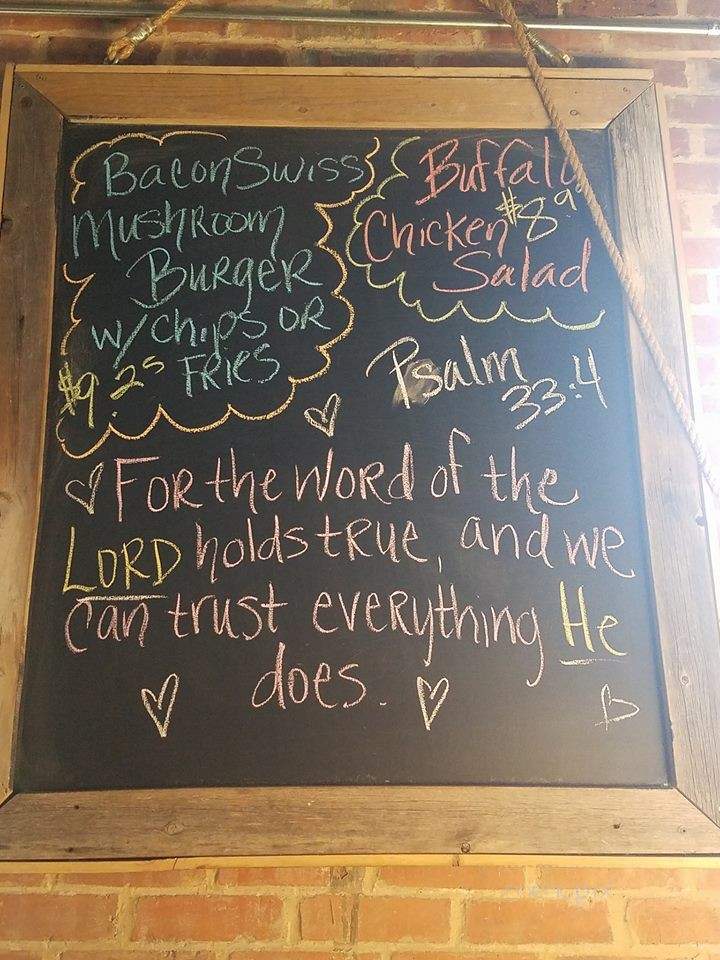 Bacon Swiss
Mushroom
Burger
w/ chips or
Fries
$9.25
Buffalo
Chicken $8.9
Salad
Psalm
33:4
For the word of the
LORD holds true, and we
can trust everything He
does.